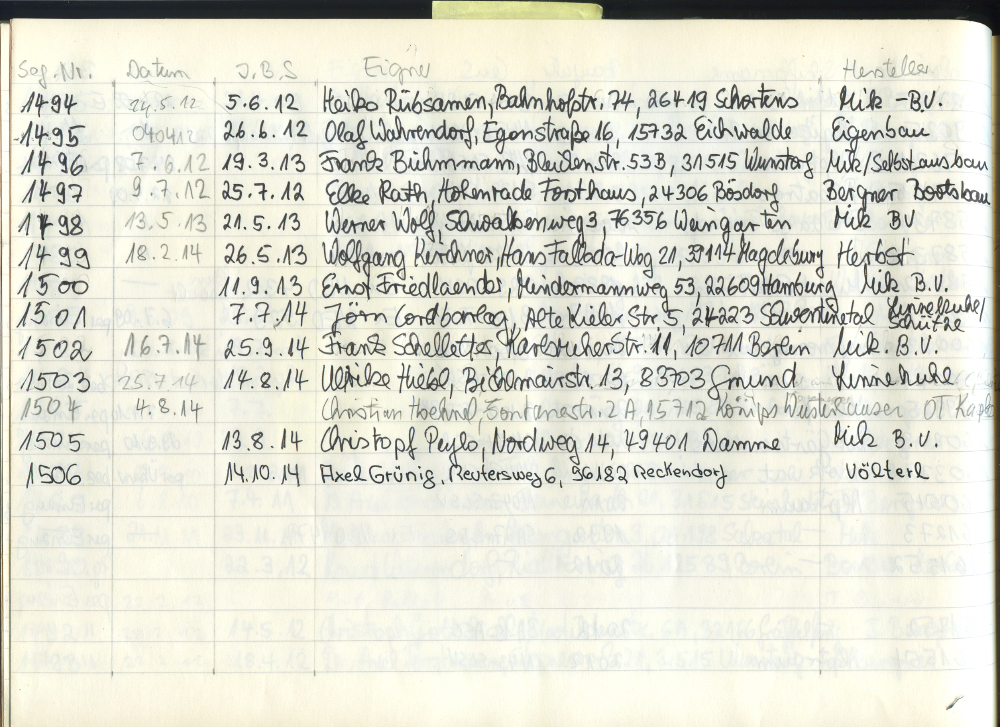 Seg.Nr. Datum I.B.S Eigner Hersteller
1494 24.5.12 5.6.12 Heiko Rübsamen, Bahnhofstr. 74, 26419 Schortens Mik-BV.
1495 040412 26.6.12 Olaf Wahrendorf, Egonstraße 16, 15732 Eichwalde Eigenbau
1496 7.6.12 19.3.13 Frank Bühmmann, 53B, 31515 Wunstorf Mik/Selbstausbau
1497 9.7.12 25.7.12 Elke Rath, Hohenrade Forsthaus, 24306 Bösdorf Bergner Bootsbau
1498 13.5.13 21.5.13 Werner Wolf, Schwalbenweg 3, 76356 Weingarten Mik BV
1499 18.2.14 26.5.13 Wolfgang Kirchner, Hans Fallada-Weg 21, 39114 Magdeburg Herbst
1500 11.9.13 Ernst Friedlaender, Mindermannweg 53, 22609 Hamburg Mik B.V.
1501 7.7.14 Jörn Cordbarlag, Alte Kieler Str. 5, 24223 Schwentinetal Linnekuhl/
Schütze
1502 16.7.14 25.9.14 Frank Schellotter, Karlsruher Str. 11, 10711 Berlin Mik. B.V.
1503 25.7.14 14.8.14 Ulrike Hiebl, Bichlmairstr. 13, 83703 Gmund Linnekuhl
1504 4.8.14 Christian Fontanestr. 2A, 15712 Königs Wusterhausen OT
1505 13.8.14 Christopf Peylo, Nordweg 14, 49401 Damme Mik B.V.
1506 14.10.14 Axel Grünig, Reutersweg 6, 96182 Reckendorf Völterl